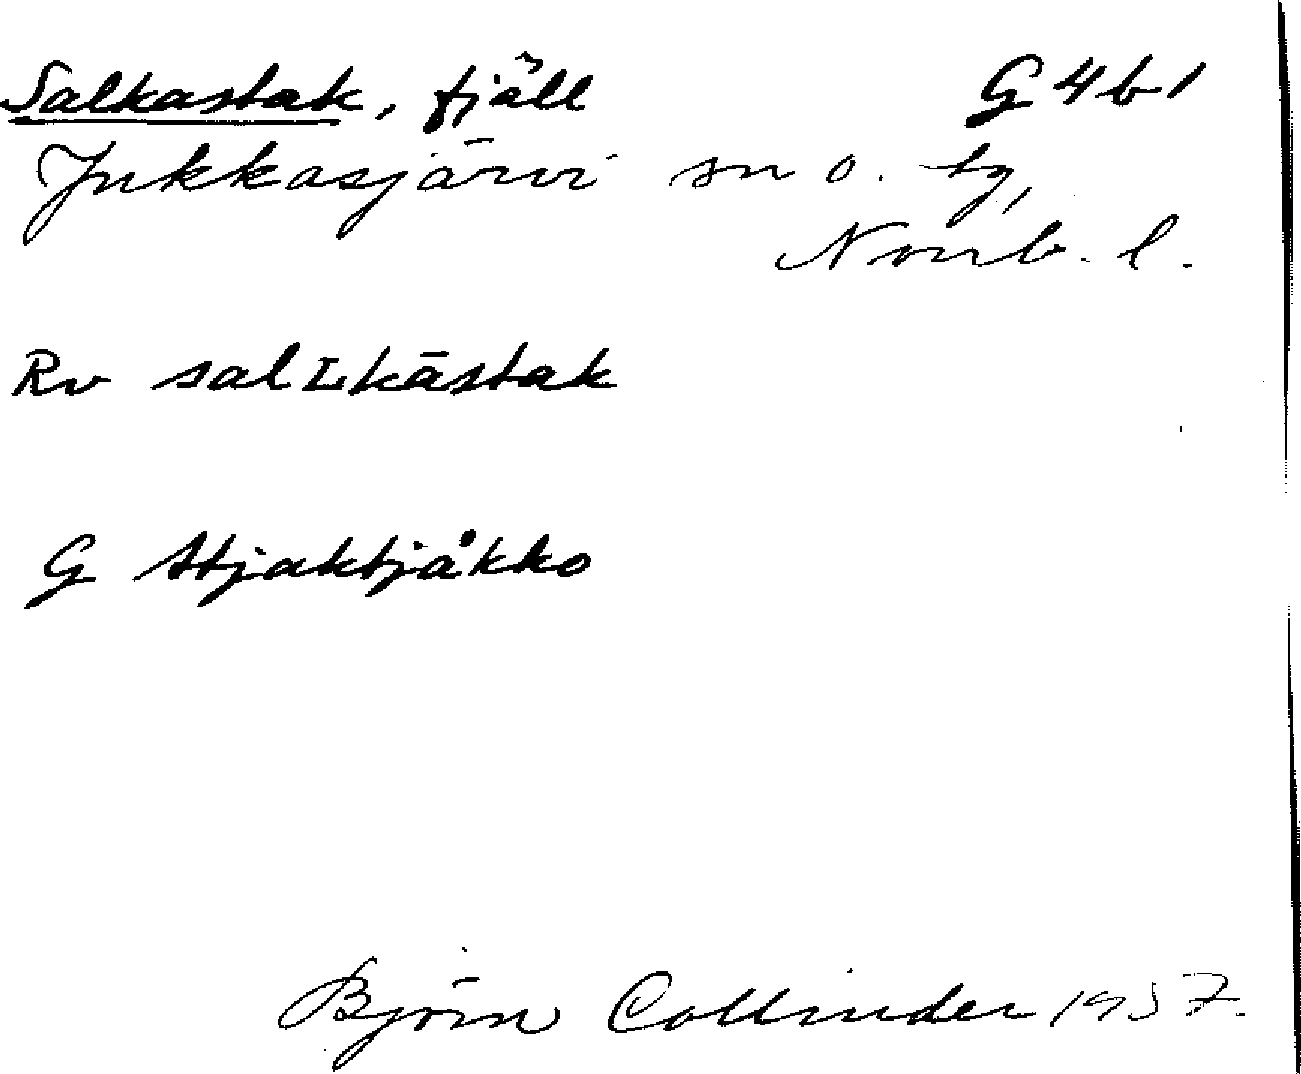 Salkastak, fjäll G 4 b 1
Jukkasjärvi sn o. tg,
Norrb. l.
Rv salʟkāstak
G Stjaktjåkko
Björn Collinder 1957.